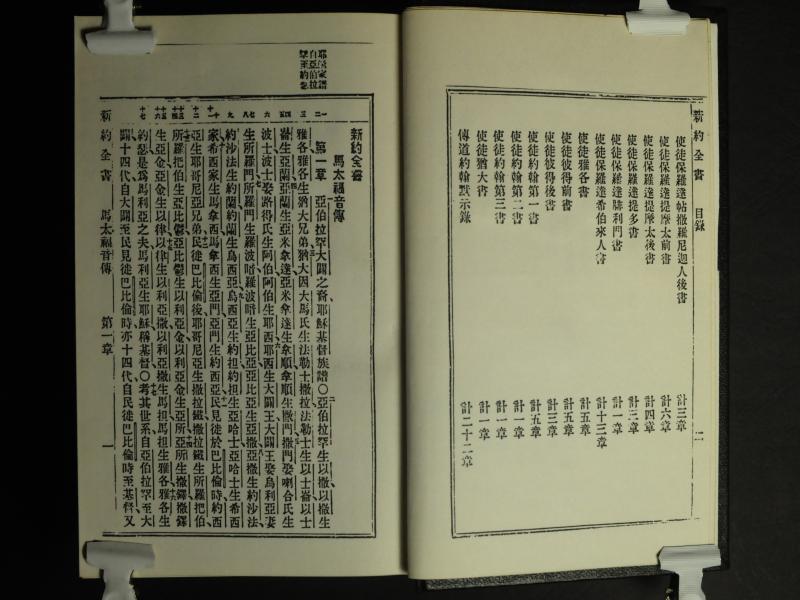 新約全書 目錄 二
使徒保羅達帖撒羅尼迦人後書 計三章
使徒保羅達提摩太前書 計六章
使徒保羅達提摩太後書 計四章
使徒保羅達提多書 計三章
使徒保羅達腓利門書 計一章
使徒保羅達希伯來人書 計十三章
使徒雅各書 計五章
使徒彼得前書 計五章
使徒彼得後書 計三章
使徒約翰第一書 計五章
使徒約翰第二書 計一章
使徒約翰第三書 計一章
使徒猶大書 計一章
傳道約翰默示錄 計二十二章
耶穌家譜
自亞伯拉
罕至約瑟
新約全書
馬太福音傳
第一章 亞伯拉罕大闢之裔耶穌基督族譜〇亞伯拉罕生以撒以撒生
雅各雅各生猶大兄弟猶大因大馬氏生法勒士撒拉法勒士生以士崙以士
崙生亞蘭亞蘭生亞米拿達亞米拿達生拿順拿順生撒門撒門娶喇合氏生
波士波士娶路得氏生阿伯阿伯生耶西耶西生大闢王大闢王娶烏利亞妻
生所羅門所羅門生羅波暗羅波暗生亞比亞亞比亞生亞撒亞撒生約沙法
約沙法生約蘭約蘭生烏西亞烏西亞生約担約担生亞哈士亞哈士生希西
家希西家生馬拿西馬拿西生亞門亞門生約西亞民見徙於巴比倫時約西
亞生耶哥尼亞兄弟民徙巴比倫後耶哥尼亞生撒拉鐵撒拉鐵生所羅把伯
所羅把伯生亞比鬱亞比鬱生以利亞金以利亞金生亞所亞所生撒鐸撒鐸
生亞金亞金生以律以律生以利亞撒以利亞撒生馬担馬担生雅各雅各生
約瑟是為馬利亞之夫馬利亞生耶穌稱基督〇考其世系自亞伯拉罕至大
闢十四代自大闢至民見徙巴比倫時亦十四代自民徙巴比倫時至基督又
新約全書 馬太福音傳 第一章 一